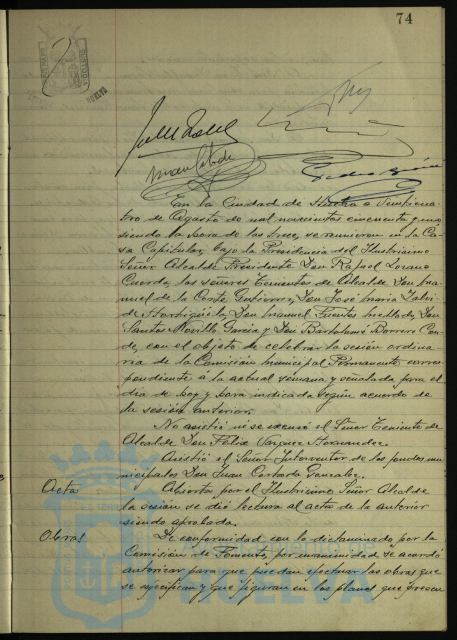 74
HUELVA
En la Ciudad de Huelva a veinticua-
tro de Agosto de mil novecientos cincuenta y uno
siendo la hora de las trece, se reunieron en la Ca-
sa Capitular, bajo la Presidencia del Ilustrisimo
Señor Alcalde Presidente Don Rafael Lozano
Cuerda, los señores Tenientes de Alcalde Don Ma-
nuel de la Corte Gutierrez, Don José Maria
de Don Manuel Fuentes Don
Santos Bovillo Garcia y Don Bartolomé Borrero Con-
de, con el objeto de celebrar la sesión ordina-
ria de la Comisión Municipal Permanente corres-
pondiente á la actual semana y señalada para el
dia de hoy y hora indicada según acuerdo de
la sesión anterior.
No asistió ni se excusó el Señor Teniente de
Alcalde Don Félix Vazquez Hernandez.
Asistió el Señor Interventor de los fondos mu-
nicipales Don Juan Cortada Gonzalez.
Acta Abierta por el Ilustrisimo Señor Alcalde
la sesión se dió lectura al acta de la anterior
siendo aprobada.
Obras De conformidad con lo dictaminado por la
Comisión de Fomento, por unanimidad se acordó
autorizar para que puedan efectuar las obras que
se especifican y que figuran en los planos que presen